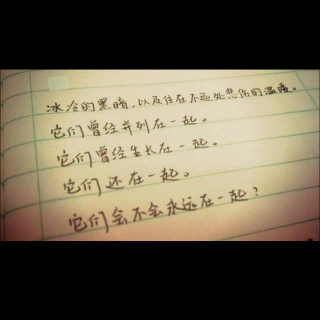 冰冷的黑暗，以及住在不远处悲伤的温暖。
它们曾经并列在一起。
它们曾经生长在一起。
它们还在一起。
它们会不会永远在一起？